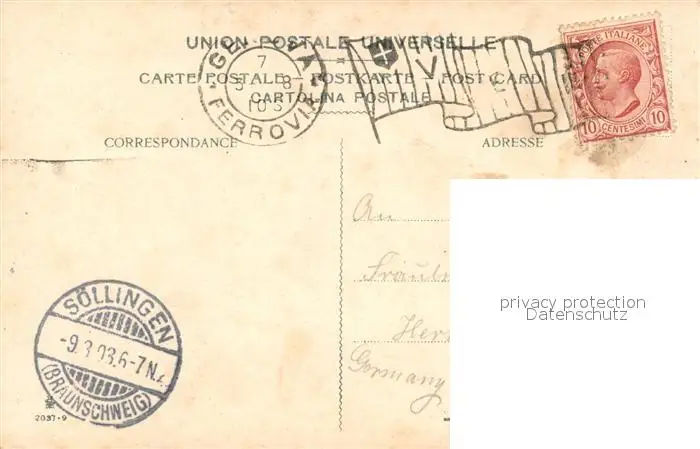 UNION POSTALE UNIVERSELLE
CARTE POSTALE – POSTKARTE – POST CARD
CARTOLINA POSTALE
FERROVIA
POSTE ITALIANE
10 CENTESIMI 10
CORRESPONDANCE
ADRESSE
An
Germany
privacy protection
Datenschutz
SÖLLINGEN
(BRAUNSCHWEIG)
2037-9